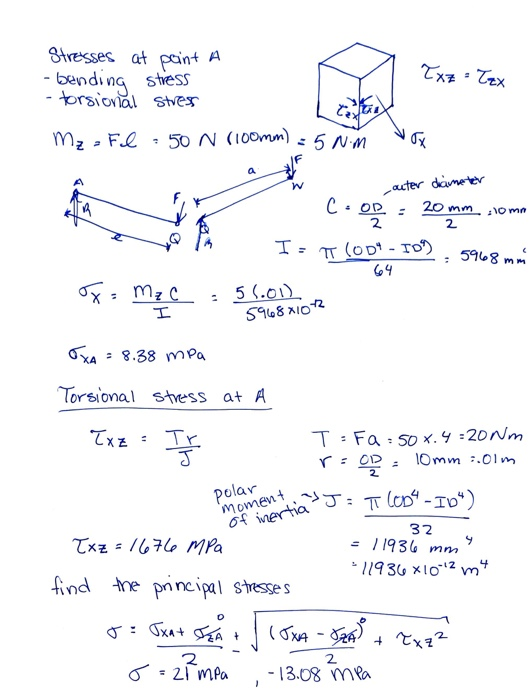 Stresses at point A
- bending stress
- torsional stress
τxz = τzx
τzx τxz
σx
Mz = F.l = 50 N (100mm) = 5 N·m
A R F Q e
a F W R
outer diameter
C = OD/2 = 20 mm/2 = 10 mm
I = π (OD⁴ - ID⁴)/64 = 5968 mm
σx = Mz C/I = 5(.01)/5968×10⁻¹²
σxA = 8.38 MPa
Torsional stress at A
τxz = Tr/J
T = Fa = 50 x .4 = 20 Nm
r = OD/2 = 10mm = .01m
polar moment of inertia → J = π (OD⁴ - ID⁴)/32
= 11936 mm⁴
= 11936 x10⁻¹² m⁴
τxz = 1676 MPa
find the principal stresses
σ = σxA + σzA⁰/2 ± √((σxA - σzA)⁰/2 + τxz²)
σ = 21 MPa , -13.08 MPa